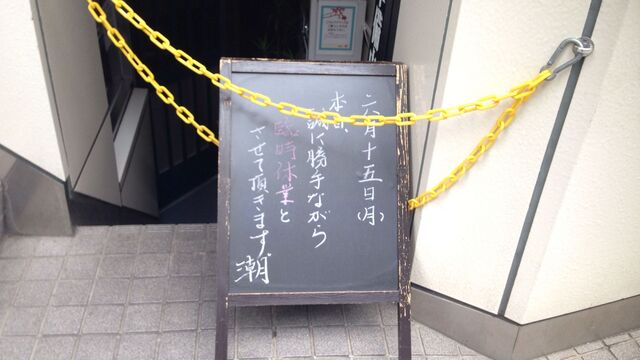 六月十五日(月)
本日、
誠に勝手ながら
臨時休業と
させて頂きます
潮